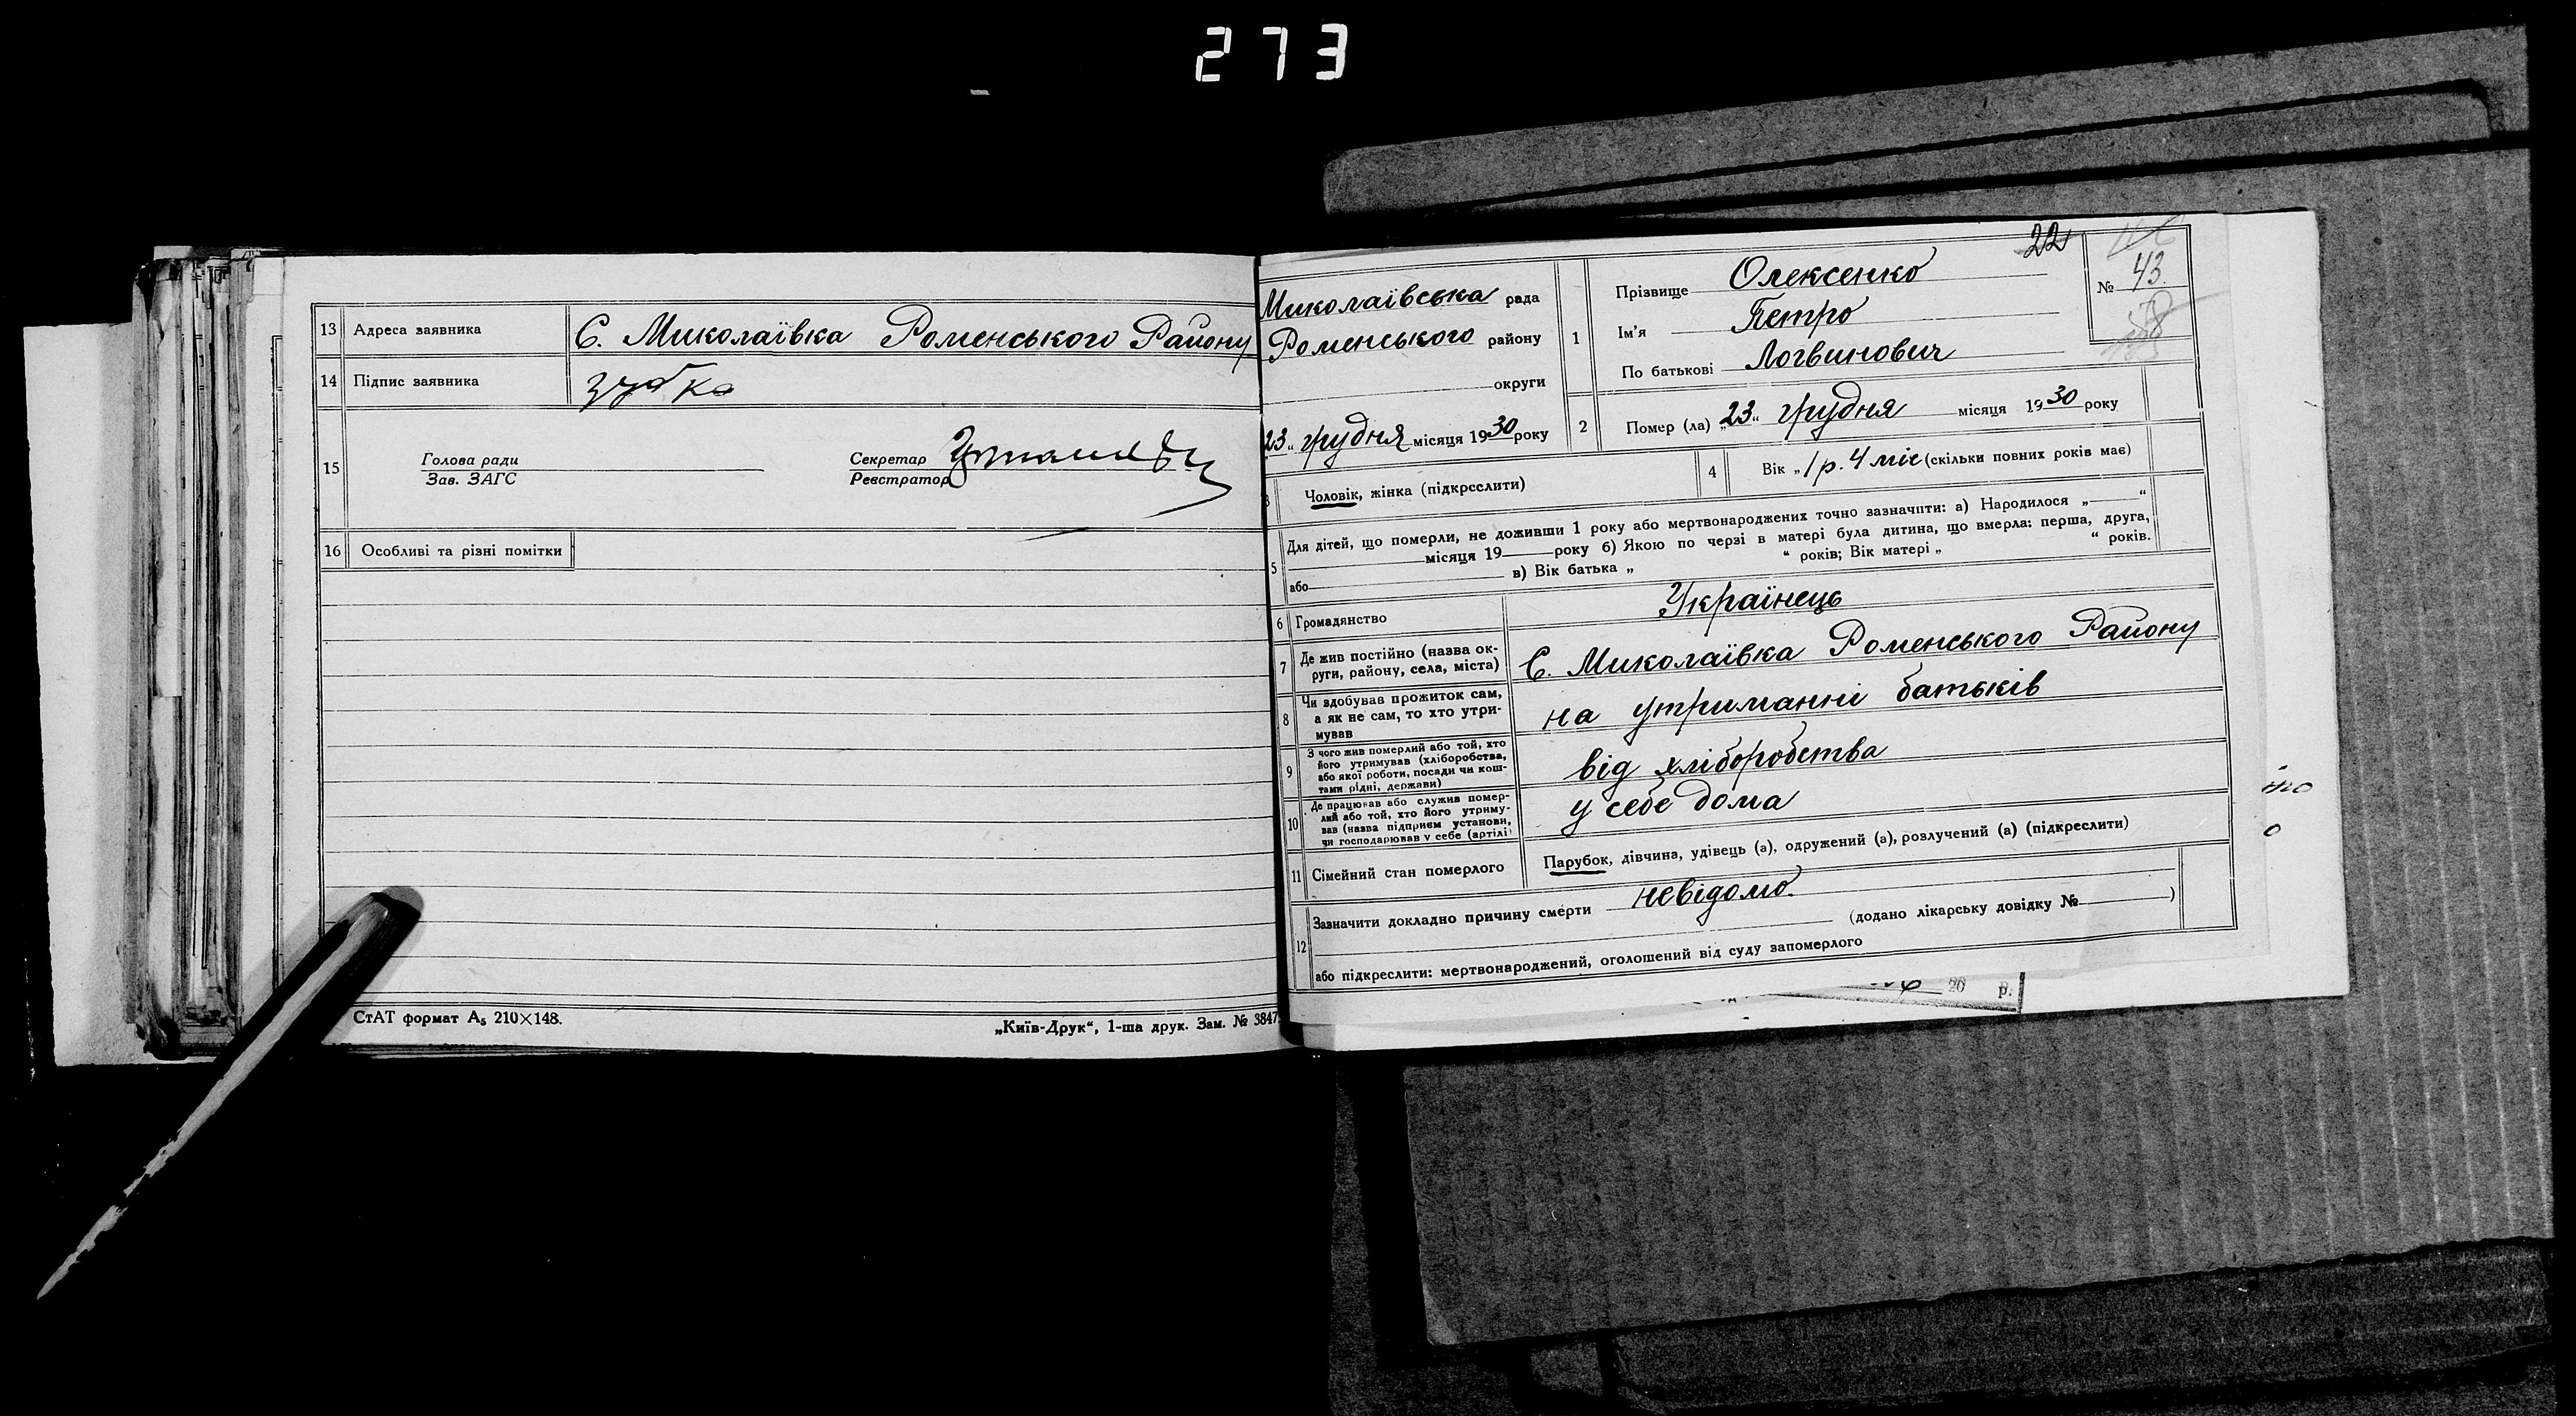 273
13 Адреса заявника С. Миколаївка Роменського Району
14 Підпис заявника
15 Голова ради Секретар
Зав. ЗАГС Реєстратор
16 Особливі та різні помітки
СтАТ формат А5 210×148.
„Київ-Друк“, 1-ша друк. Зам. № 3847
22
Миколаївська рада
Роменського району
округи
23 „ грудня місяця 1930 року
1 Прізвище Олексенко
Ім’я Петро
По батькові Логвинович
№ 43.
2 Помер (ла) „23“ грудня місяця 1930 року
3 Чоловік, жінка (підкреслити)
4 Вік „ 1 р. 4 міс (скільки повних років має)
5 Для дітей, що померли, не доживши 1 року або мертвонароджених точно зазначити: а) Народилося „ “
місяця 19 року б) Якою по черзі в матері була дитина, що вмерла: перша, друга,
або в) Вік батька „ “ років; Вік матері „ “ років.
6 Громадянство Українець
7 Де жив постійно (назва ок-
руги, району, села, міста) С. Миколаївка Роменського Району
8 Чи здобував прожиток сам,
а як не сам, то хто утри-
мував на утриманні батьків
9 З чого жив померлий або той, хто
його утримував (хліборобства,
або якої роботи, посади чи кош-
тами рідні, держави) від хліборобства
10 Де працював або служив помер-
лий або той, хто його утриму-
вав (назва підприєм установи,
чи господарював у себе (артілі) у себе дома
11 Сімейний стан померлого Парубок, дівчина, удівець (а), одружений (а), розлучений (а) (підкреслити)
12 Зазначити докладно причину смерти невідомо.
(додано лікарську довідку № )
або підкреслити: мертвонароджений, оголошений від суду запомерлого
20 р.